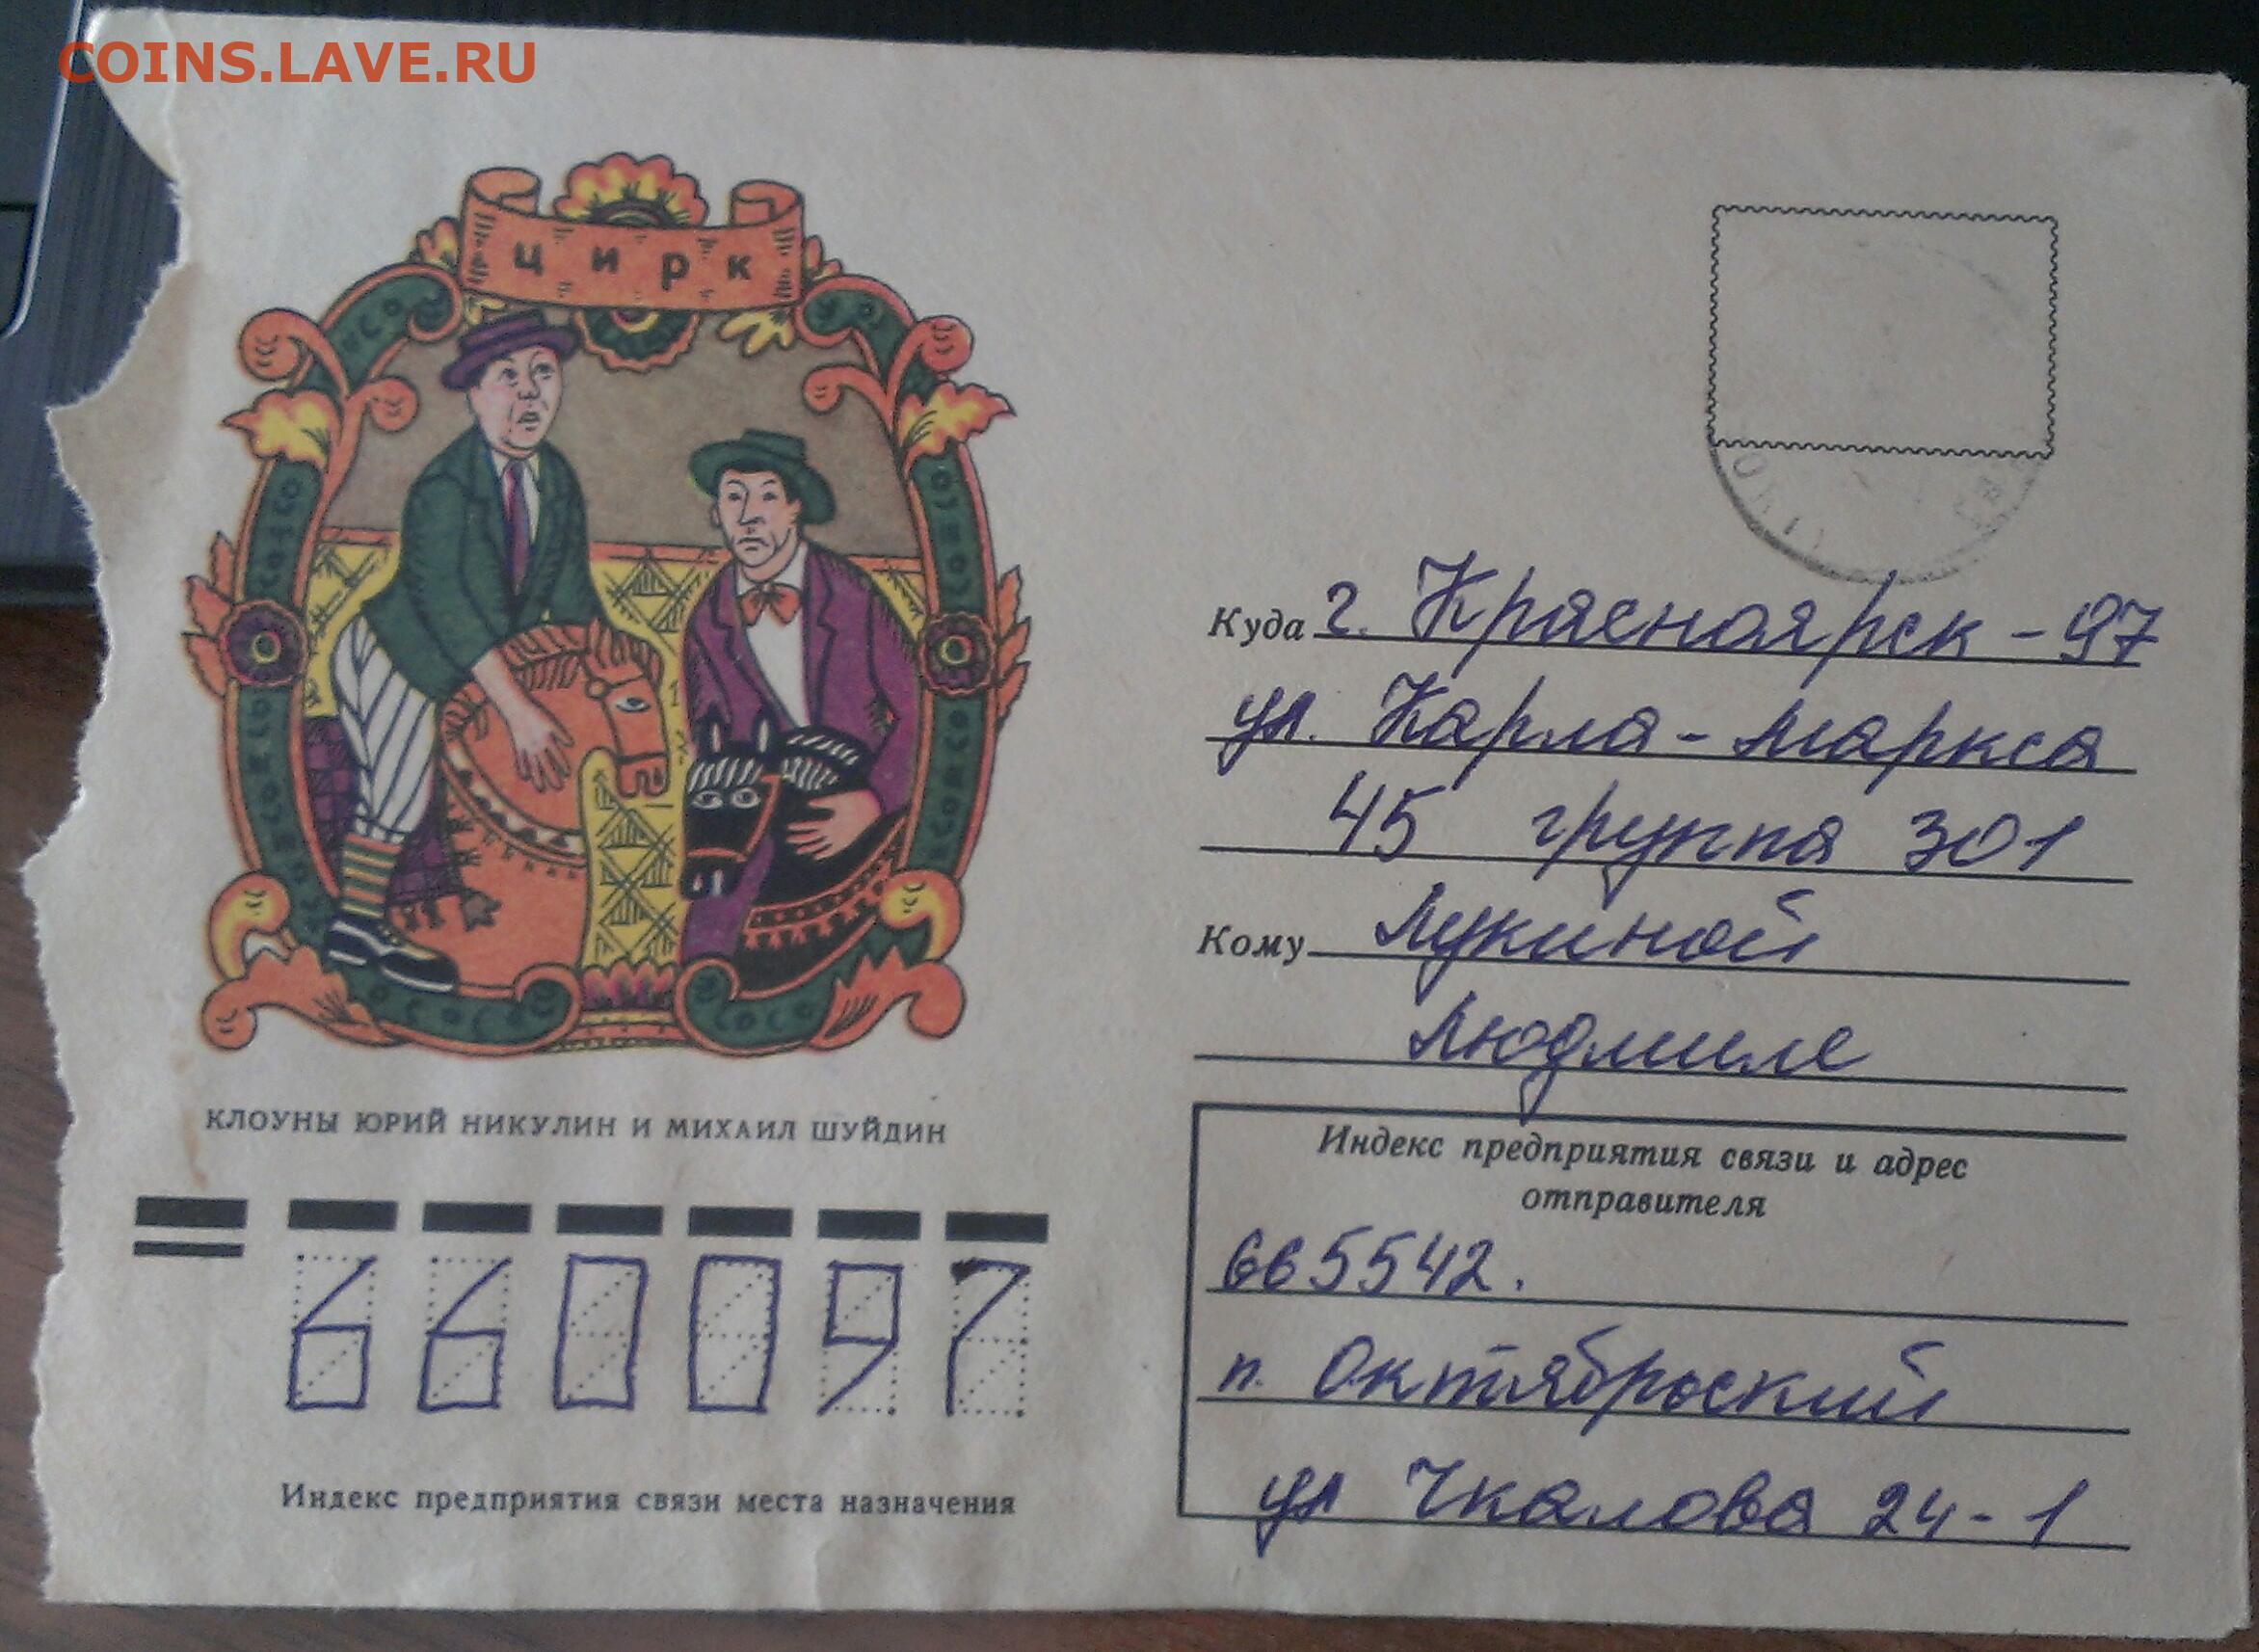 COINS.LAVE.RU
цирк
КЛОУНЫ ЮРИЙ НИКУЛИН И МИХАИЛ ШУЙДИН
660097
Индекс предприятия связи места назначения
Куда г. Красноярск - 97
ул. Карла - Маркса
45 группа 301
Кому Лукиной
Людмиле
Индекс предприятия связи и адрес
отправителя
665542.
п. Октябрьский
ул Чкалова 24 - 1